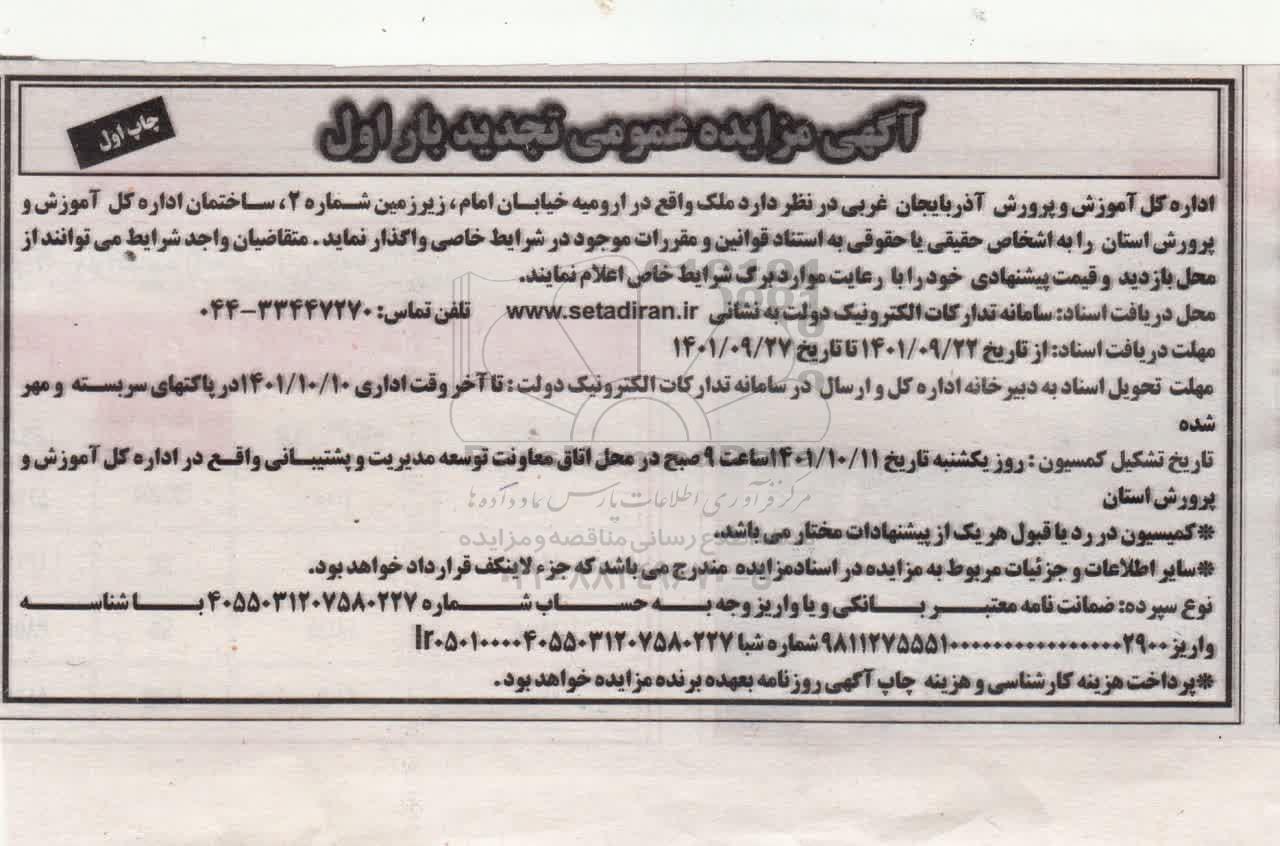 آگهی مزایده عمومی تجدید بار اول
چاپ اول
اداره کل آموزش و پرورش آذربایجان غربی در نظر دارد ملک واقع در ارومیه خیابان امام، زیرزمین شماره ۲، ساختمان اداره کل آموزش و
پرورش استان را به اشخاص حقیقی یا حقوقی به استناد قوانین و مقررات موجود در شرایط خاصی واگذار نماید. متقاضیان واجد شرایط می توانند از
محل بازدید و قیمت پیشنهادی خود را با رعایت موارد برگ شرایط خاص اعلام نمایند.
محل دریافت اسناد: سامانه تدارکات الکترونیک دولت به نشانی www.setadiran.ir تلفن تماس: ۳۳۴۴۷۲۷۰-۰۴۴
مهلت دریافت اسناد: از تاریخ ۱۴۰۱/۰۹/۲۲ تا تاریخ ۱۴۰۱/۰۹/۲۷
مهلت تحویل اسناد به دبیرخانه اداره کل و ارسال در سامانه تدارکات الکترونیک دولت: تا آخر وقت اداری ۱۴۰۱/۱۰/۱۰ در پاکتهای سربسته و مهر
شده
تاریخ تشکیل کمسیون: روز یکشنبه تاریخ ۱۴۰۱/۱۰/۱۱ ساعت ۹ صبح در محل اتاق معاونت توسعه مدیریت و پشتیبانی واقع در اداره کل آموزش و
پرورش استان
*کمیسیون در رد یا قبول هر یک از پیشنهادات مختار می باشد.
*سایر اطلاعات و جزئیات مربوط به مزایده در اسناد مزایده مندرج می باشد که جزء لاینکف قرارداد خواهد بود.
نوع سپرده: ضمانت نامه معتبر بانکی و یا واریز وجه به حساب شماره ۴۰۵۵۰۳۱۲۰۷۵۸۰۲۲۷ با شناسه
واریز شماره شبا Ir۰۵۰۱۰۰۰۰۴۰۵۵۰۳۱۲۰۷۵۸۰۲۲۷
*پرداخت هزینه کارشناسی و هزینه چاپ آگهی روزنامه بعهده برنده مزایده خواهد بود.
مرکز فرآوری اطلاعات پارس نماد داده ها